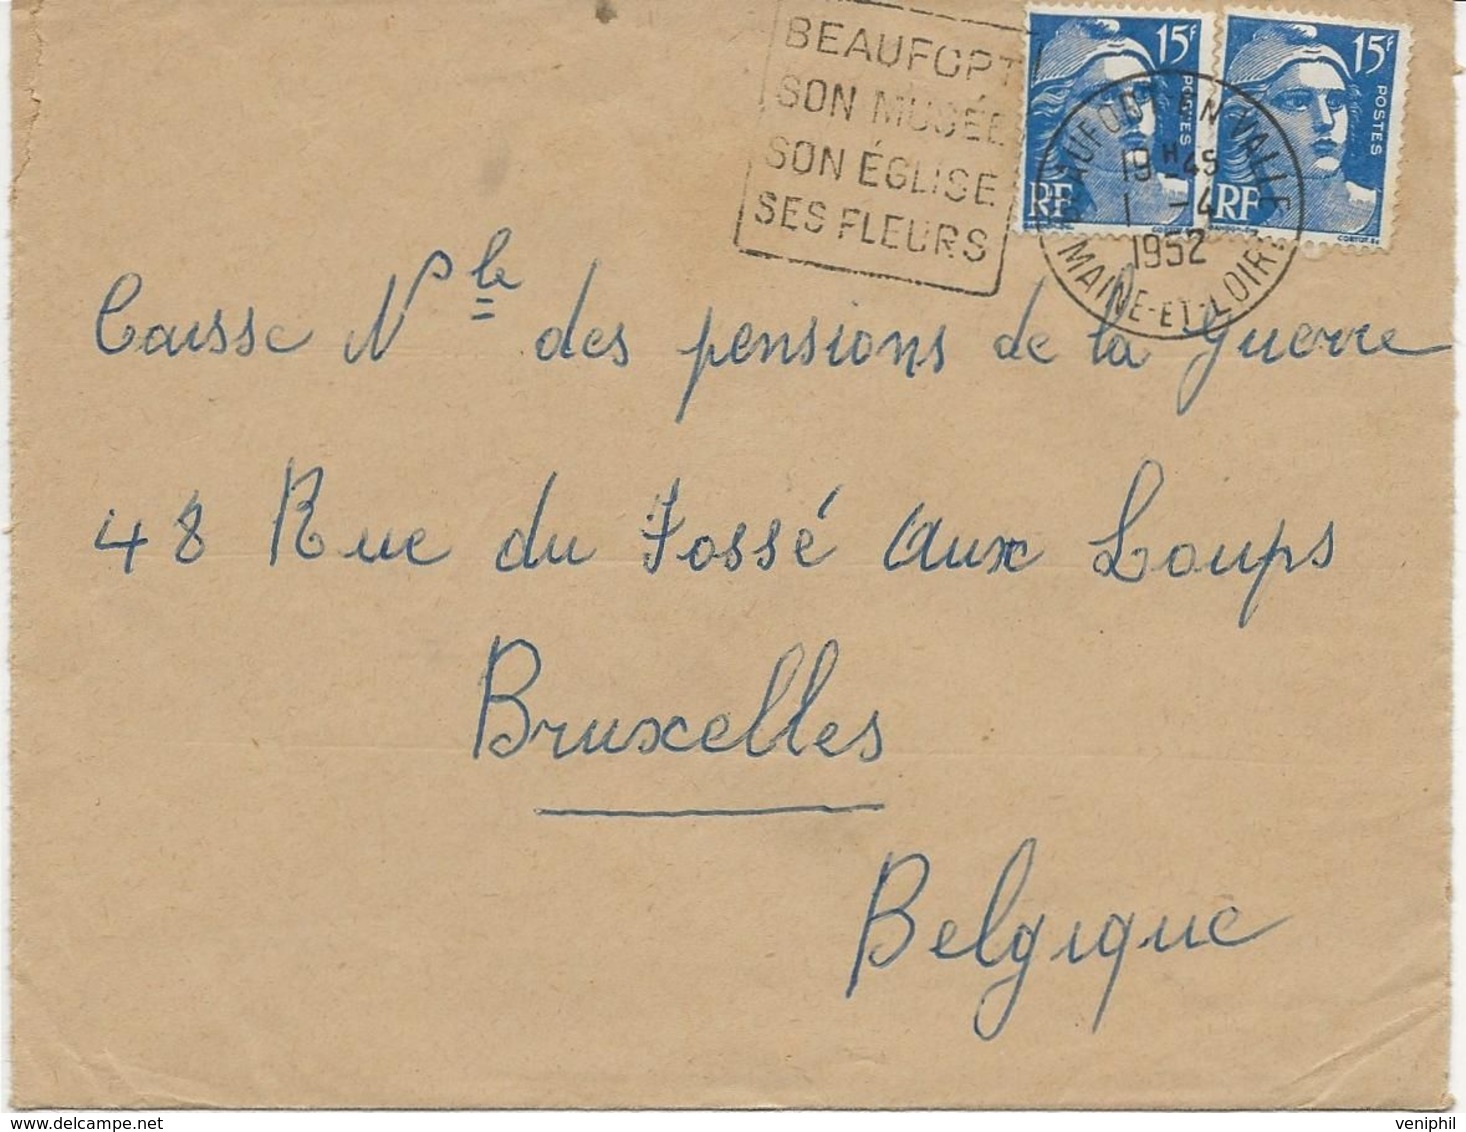 BEAUFORT
SON MUSÉE
SON ÉGLISE
SES FLEURS
15F
POSTES
RF
15F
POSTES
RF
BEAUFORT-EN-VALLÉE
19H45
1 -4
1952
MAINE-ET-LOIRE
Caisse Nle des pensions de la Guerre
48 Rue du Fossé aux Loups
Bruxelles
Belgique
veniphil